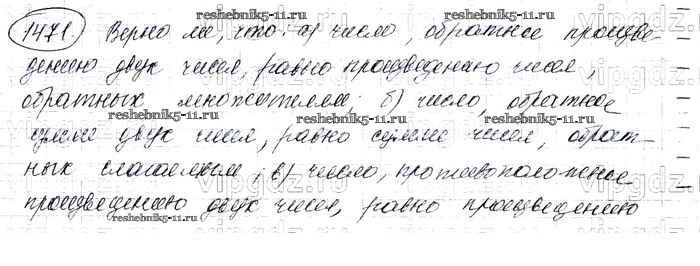 1471. Верно ли, что: а) число, обратное произве-
дению двух чисел, равно произведению чисел,
обратных множителям; б) число, обратное
сумме двух чисел, равно сумме чисел, обрат-
ных слагаемым; в) число, противоположное
произведению двух чисел, равно произведению
reshebnik5-11.ru
reshebnik5-11.ru
reshebnik5-11.ru
reshebnik5-11.ru
reshebnik5-11.ru
reshebnik5-11.ru
reshebnik5-11.ru
vipgdz
vipgdz.
vipgdz.